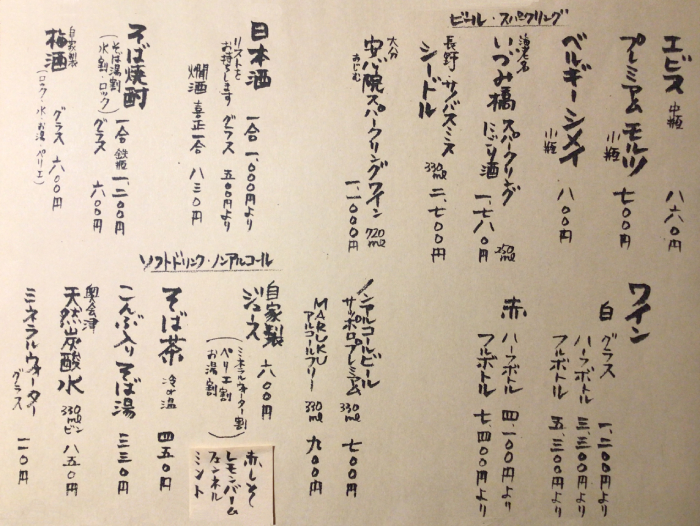 ビール・スパークリング
エビス 中瓶 八六〇円
プレミアム モルツ 小瓶 七〇〇円
ベルギーシメイ 小瓶 八〇〇円
海老名
いづみ橋 スパークリング にごり酒 250ml 一、七八〇円
長野・サノバスミス
シードル 330ml 二、七〇〇円
大分
安心院スパークリングワイン 720ml
あじむ 一一、〇〇〇円
日本酒 一合 一、〇〇〇円より
リストを
お持ちします グラス 五〇〇円より
燗酒 喜正一合 八三〇円
そば焼酎 一合 鉄瓶 一、二〇〇円
(そば湯割
水割・ロック) グラス 六〇〇円
自家製
梅酒 グラス 六〇〇円
(ロック 水 お湯 ペリエ)
ワイン
白 グラス 一、二〇〇円より
ハーフボトル 三、三〇〇円より
フルボトル 五、三〇〇円より
赤 ハーフボトル 四、一〇〇円より
フルボトル 七、四〇〇円より
ソフトドリンク・ノンアルコール
ノンアルコールビール
サッポロプレミアム 330ml 七〇〇円
MARUKU
アルコールフリー 330ml 九〇〇円
自家製
ジュース 六〇〇円
(ミネラルウォーター割
ペリエ割
お湯割)
赤しそ
レモンバーム
フェンネル
ミント
そば茶 冷or温 四五〇円
こんぶ入りそば湯 三三〇円
奥会津
天然炭酸水 330mlビン 八五〇円
ミネラルウォーター
グラス 一一〇円